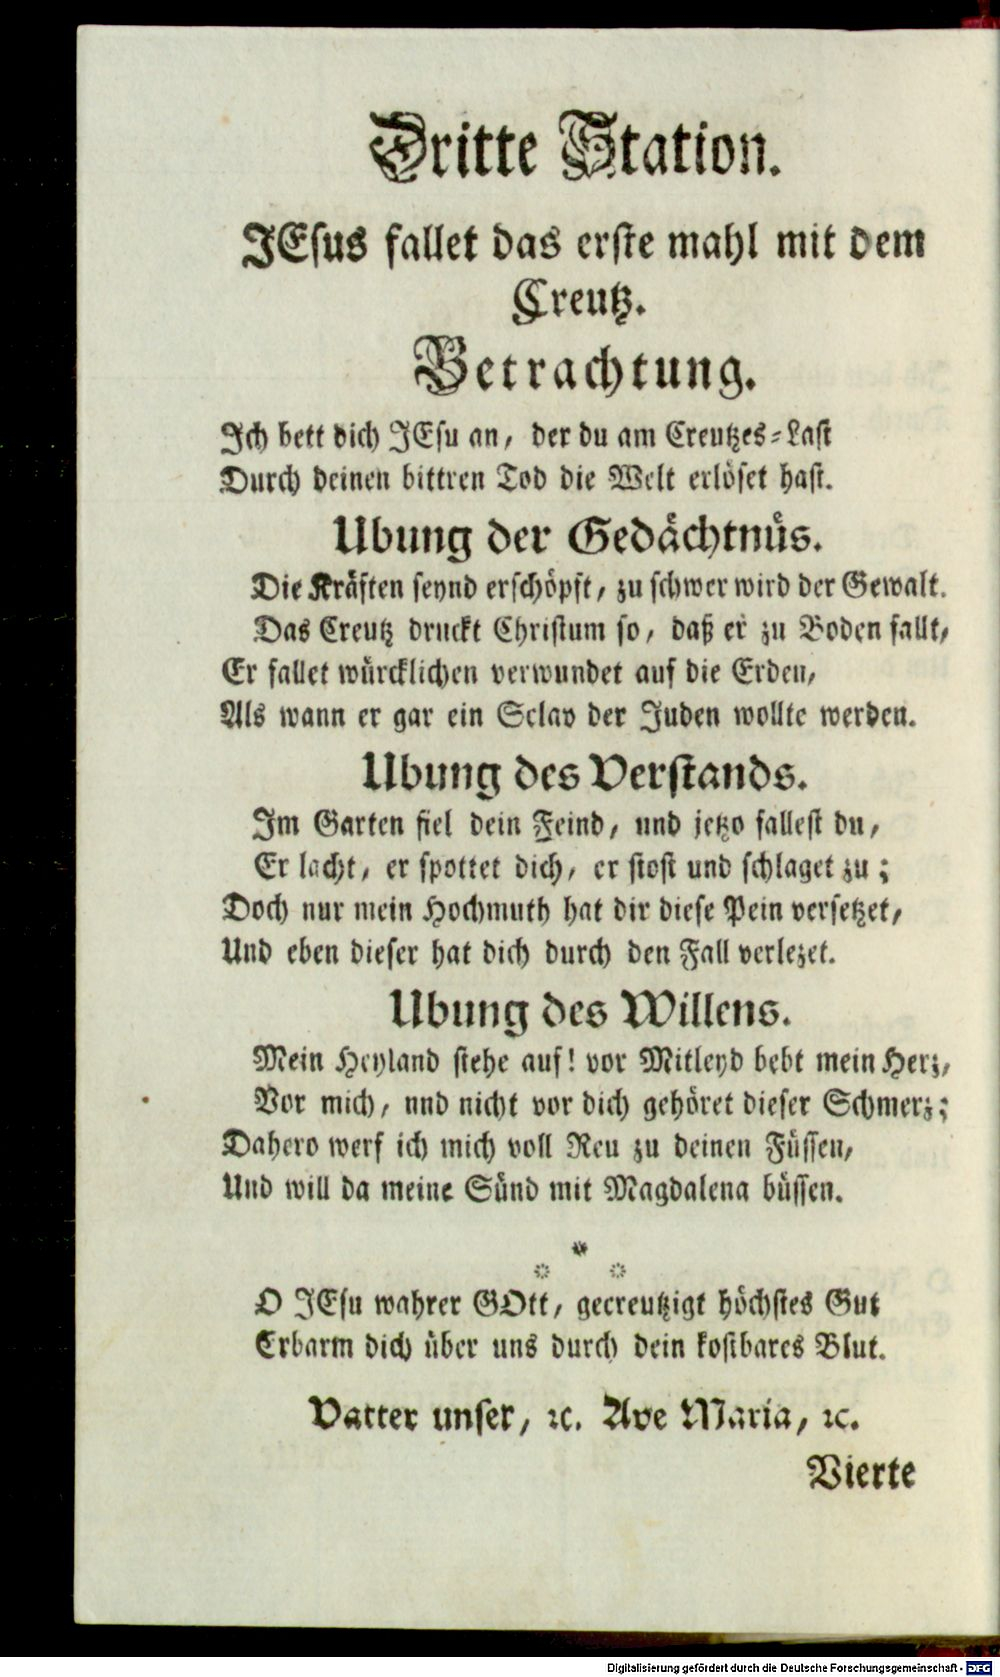 Dritte Station.
JEsus fallet das erste mahl mit dem
Creutz.
Betrachtung.
Ich bett dich JEsu an, der du am Creutzes-Last
Durch deinen bittren Tod die Welt erlöset hast.
Ubung der Gedächtnüs.
Die Kräften seynd erschöpft, zu schwer wird der Gewalt.
Das Creutz druckt Christum so, daß er zu Boden fallt,
Er fallet würcklichen verwundet auf die Erden,
Als wann er gar ein Sclav der Juden wollte werden.
Ubung des Verstands.
Im Garten fiel dein Feind, und jetzo fallest du,
Er lacht, er spottet dich, er stost und schlaget zu;
Doch nur mein Hochmuth hat dir diese Pein versetzet,
Und eben dieser hat dich durch den Fall verlezet.
Ubung des Willens.
Mein Heyland stehe auf! vor Mitleyd bebt mein Herz,
Vor mich, und nicht vor dich gehöret dieser Schmerz;
Dahero werf ich mich voll Reu zu deinen Füssen,
Und will da meine Sünd mit Magdalena büssen.
*
* *
O JEsu wahrer GOtt, gecreutzigt höchstes Gut
Erbarm dich über uns durch dein kostbares Blut.
Vatter unser, ꝛc. Ave Maria, ꝛc.
Vierte
Digitalisierung gefördert durch die Deutsche Forschungsgemeinschaft - DFG